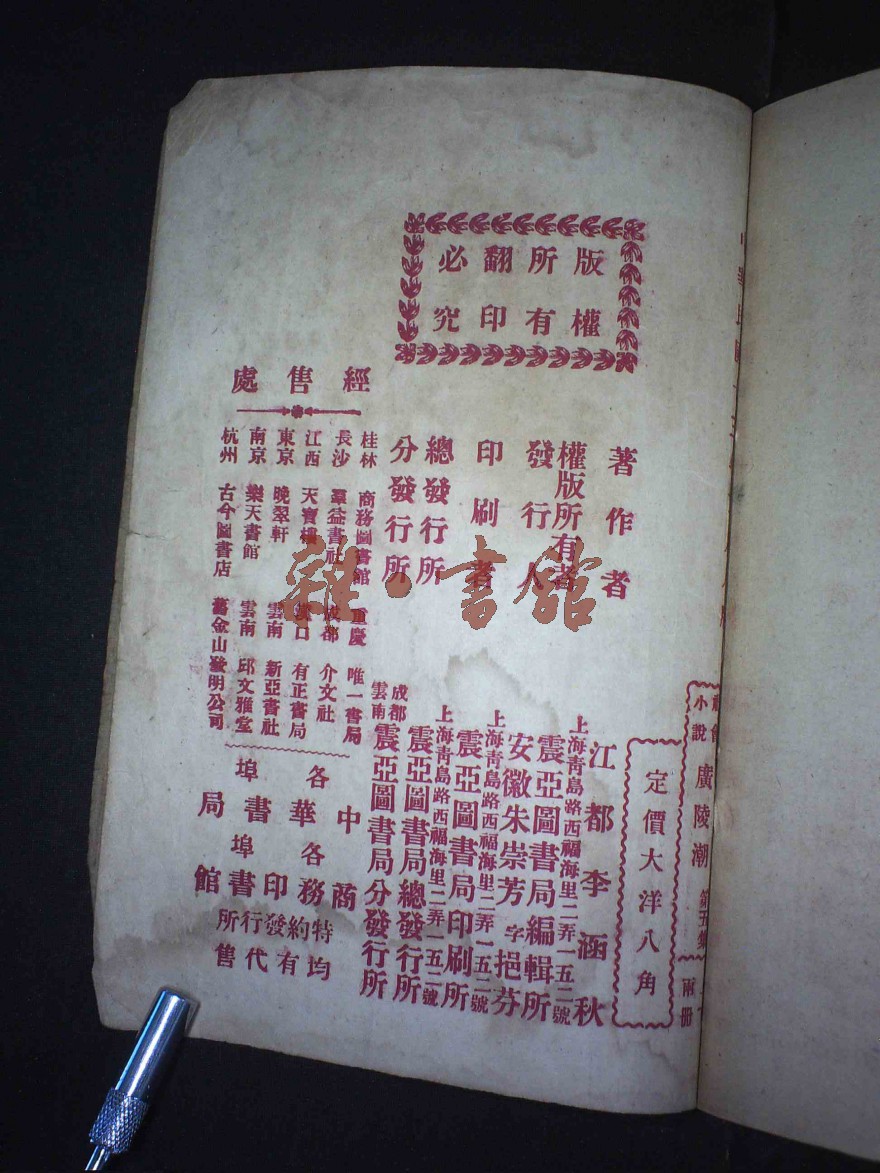 小說 廣陵潮 第五集
兩冊
定價大洋八角
版權
所有
翻印
必究
著作者 江都李涵秋
權版所有者 上海青島路西福海里二弄一五二號 震亞圖書局編輯所
發行人 安徽朱崇芳字挹芬
印刷者 上海青島路西福海里二弄一五二號 震亞圖書局印刷所
總發行所 上海青島路西福海里二弄一五二號 震亞圖書局總發行所
分發行所 成都 雲南 震亞圖書局分發行所
經售處
桂林 商務圖書館 重慶 唯一書局
長沙 羣益書社 成都 介文社
江西 天寶樓 漢口 有正書局
東京 晚翠軒 雲南 新亞書社
南京 樂天書館 雲南 邱文雅堂
杭州 古今圖書店 舊金山發明公司
各埠中華書局
各埠商務印書館
特約發行所
均有代售
雜·書館